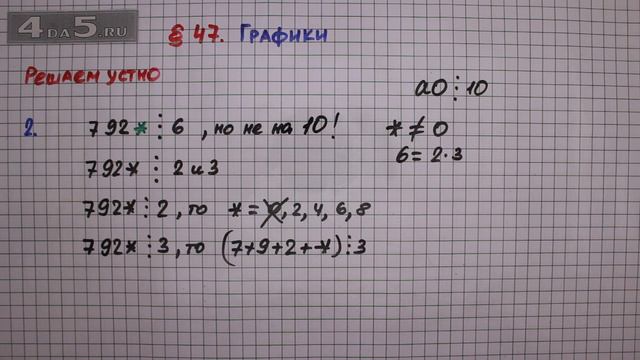 4DA5.RU
§ 47. Графики
Решаем устно
a0⋮10
2. 792*⋮6, но не на 10! *≠0
6=2·3
792*⋮2 и 3
792*⋮2, то *=0, 2, 4, 6, 8
792*⋮3, то (7+9+2+*)⋮3